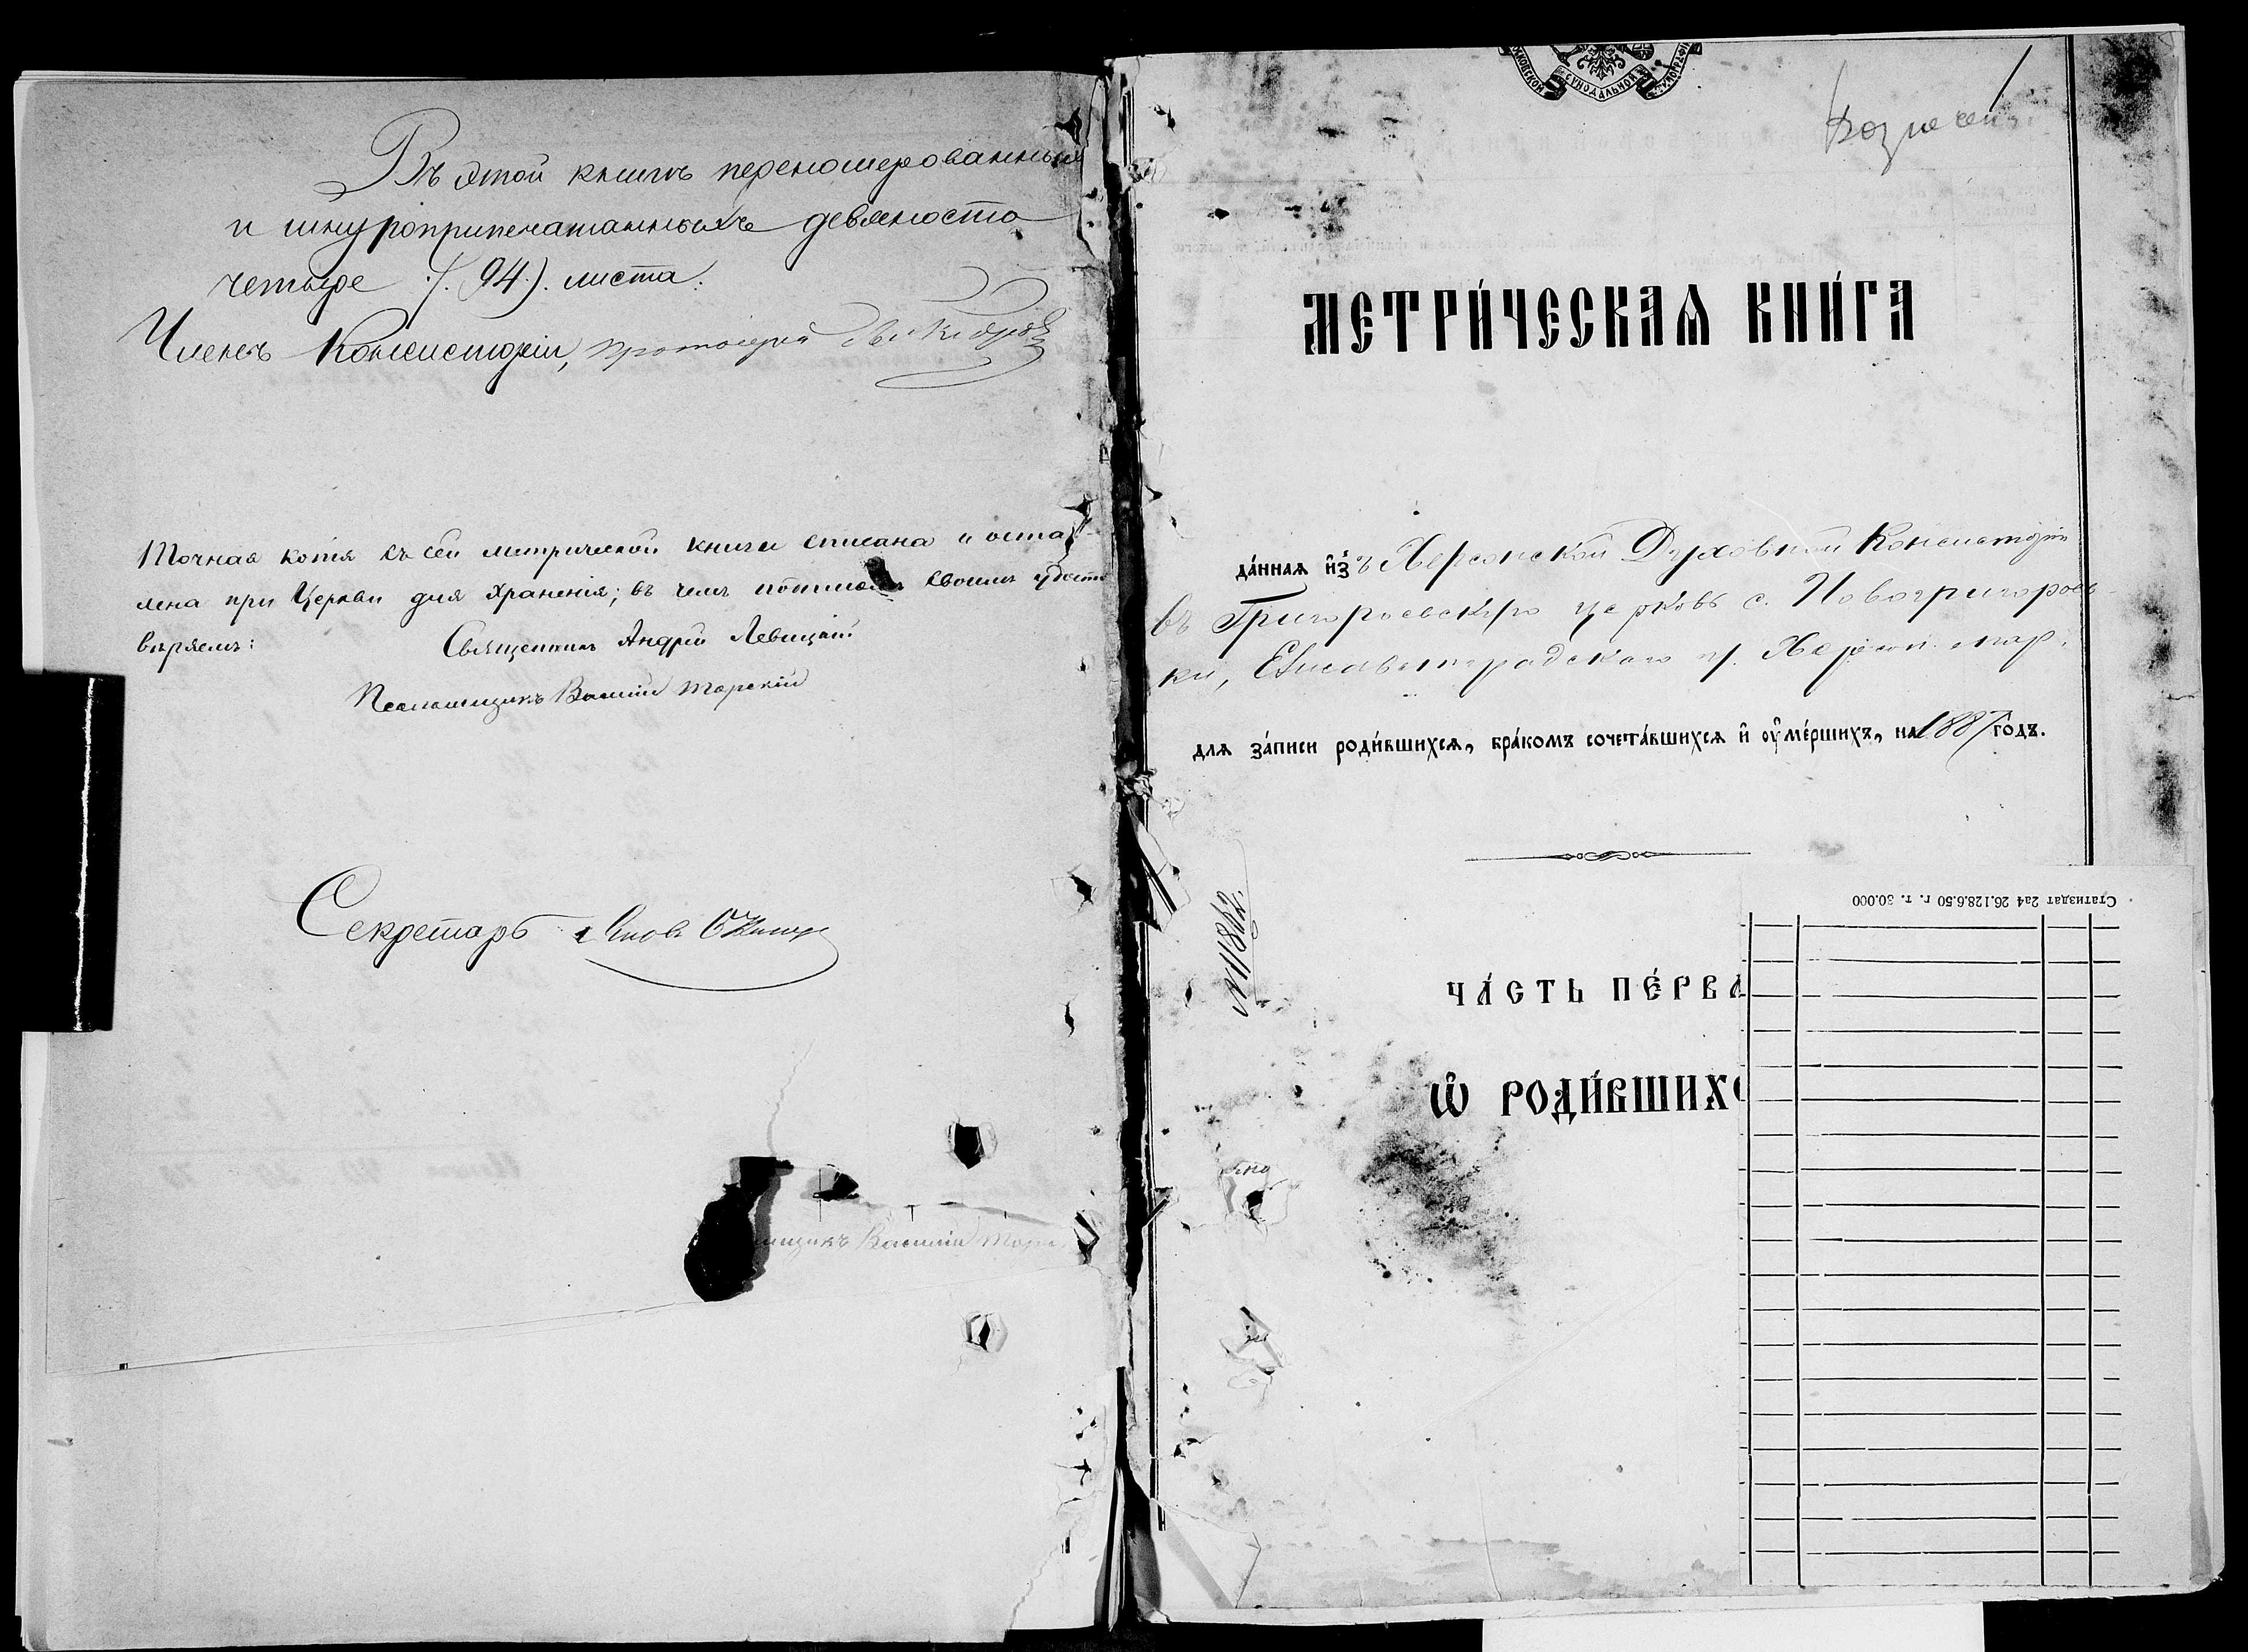 Въ этой книгѣ перенумерованныхъ
и шнуроприпечатанныхъ девяносто
четыре /. 94.). листа.
Членъ Консисторіи, протоіерей
Точная копія съ сей метрической книги списана и остав-
лена при Церкви для храненія; въ чемъ подписомъ своимъ удосто
вѣряемъ:
Священникъ Андрей Левицкій
Псаломщикъ Василій Торскій
Секретарь
мщикъ Василій Торс
СѴНОДАЛЬНОЙ
МЕТРИ́ЧЕСКАѦ КНИ́ГА
да́ннаѧ и҆з̾ъ Херсонской Духовной Консисторіи
въ Григоріевскую церковь с. Новогригоров-
ки, Елисаветградскаго у. Херсон.
длѧ за́писи роди́вшихсѧ, бра́комъ сочета́вшихсѧ и҆ ѹ҆ме́ршихъ, на 1887 го́дъ.
№ 11882.
ЧА́СТЬ ПЕ́РВА
Ѡ҆ РОДИ́ВШИХС
Статиздат 2а4 26.128.6.50 г. т. 30.000